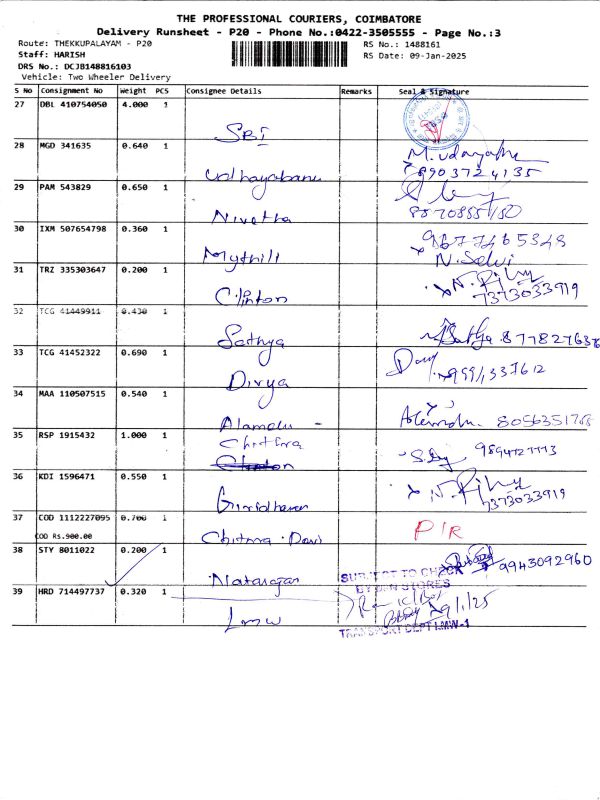 THE PROFESSIONAL COURIERS, COIMBATORE
Delivery Runsheet - P20 - Phone No.:0422-3505555 - Page No.:3
Route: THEKKUPALAYAM - P20
RS No.: 1488161
Staff: HARISH
RS Date: 09-Jan-2025
DRS No.: DCJB148816103
Vehicle: Two Wheeler Delivery
S No Consignment No Weight PCS Consignee Details Remarks Seal & Signature
27 DBL 410754050 4.000 1
SBI
28 MGD 341635 0.640 1
Udhayabanu M. Udaya
8903724135
29 PAM 543829 0.650 1
Nivetha
30 IXM 507654798 0.360 1
Mythili N. Selvi
31 TRZ 335303647 0.200 1
Clinton 7373033919
32 TCG 41449911 0.430 1
Sathya Sathya 8778276
33 TCG 41452322 0.690 1
Divya
34 MAA 110507515 0.540 1
Alamelu -
35 RSP 1915432 1.000 1
Chithra
Clinton
36 KDI 1596471 0.550 1
Giridharan 7373033919
37 COD 1112227095 0.700 1
COD Rs.900.00
Chitma Devi P/R
38 STY 8011022 0.200 1
Natarajan 9943092960
SUBJECT TO CHECK
BY STORES
39 HRD 714497737 0.320 1
Lmw 9/1/25
TRANSPORT DEPT LMW-1